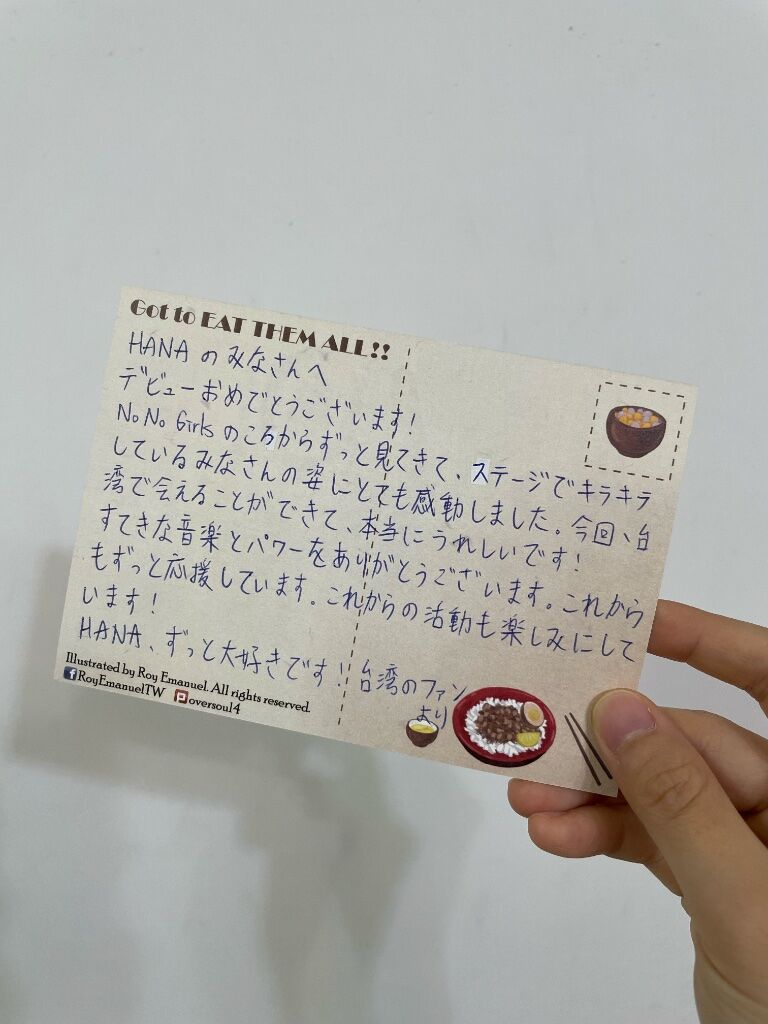 Got to EAT THEM ALL!!
HANAのみなさんへ
デビューおめでとうございます!
No No Girlsのころからずっと見てきて、ステージでキラキラ
しているみなさんの姿にとても感動しました。今回、台
湾で会えることができて、本当にうれしいです!
すてきな音楽とパワーをありがとうございます。これから
もずっと応援しています。これからの活動も楽しみにして
います!
HANA、ずっと大好きです!
台湾のファン
より
Illustrated by Roy Emanuel. All rights reserved.
RoyEmanuelTW oversoul4